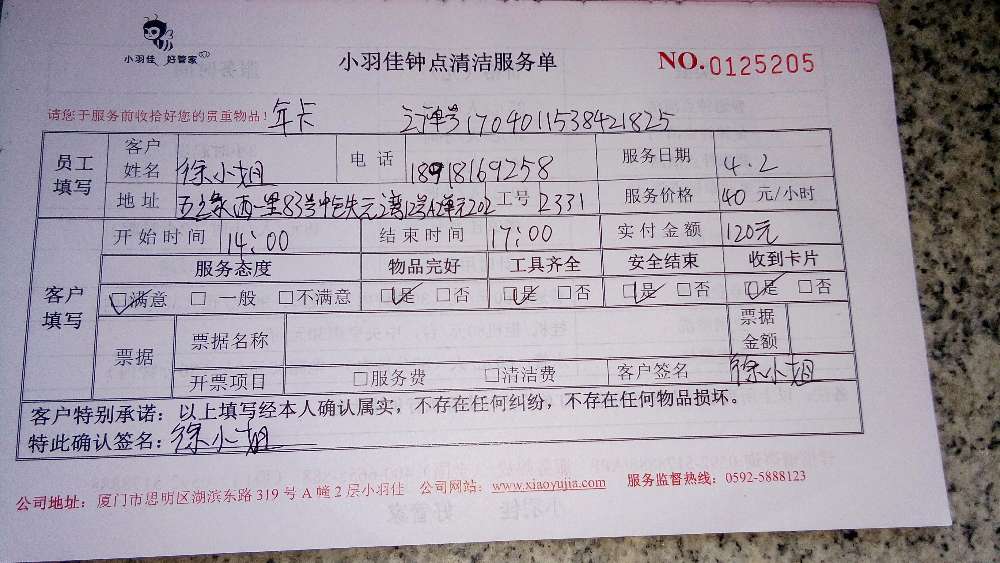 小羽佳 好管家
小羽佳钟点清洁服务单
NO.0125205
请您于服务前收拾好您的贵重物品! 年卡 订单号1704011538421825
员工填写 客户姓名 徐小姐 电话 18918169258 服务日期 4.2
地址 五缘西一里83号中铁元湾12号A2单元202 工号 2331 服务价格 40 元/小时
客户填写 开始时间 14:00 结束时间 17:00 实付金额 120元
服务态度 物品完好 工具齐全 安全结束 收到卡片
☑满意 □一般 □不满意 ☑是 □否 ☑是 □否 ☑是 □否 ☑是 □否
票据 票据名称 票据金额
开票项目 □服务费 □清洁费 客户签名 徐小姐
客户特别承诺：以上填写经本人确认属实，不存在任何纠纷，不存在任何物品损坏。
特此确认签名：徐小姐
公司地址：厦门市思明区湖滨东路319号A幢2层小羽佳 公司网站：www.xiaoyujia.com 服务监督热线：0592-5888123